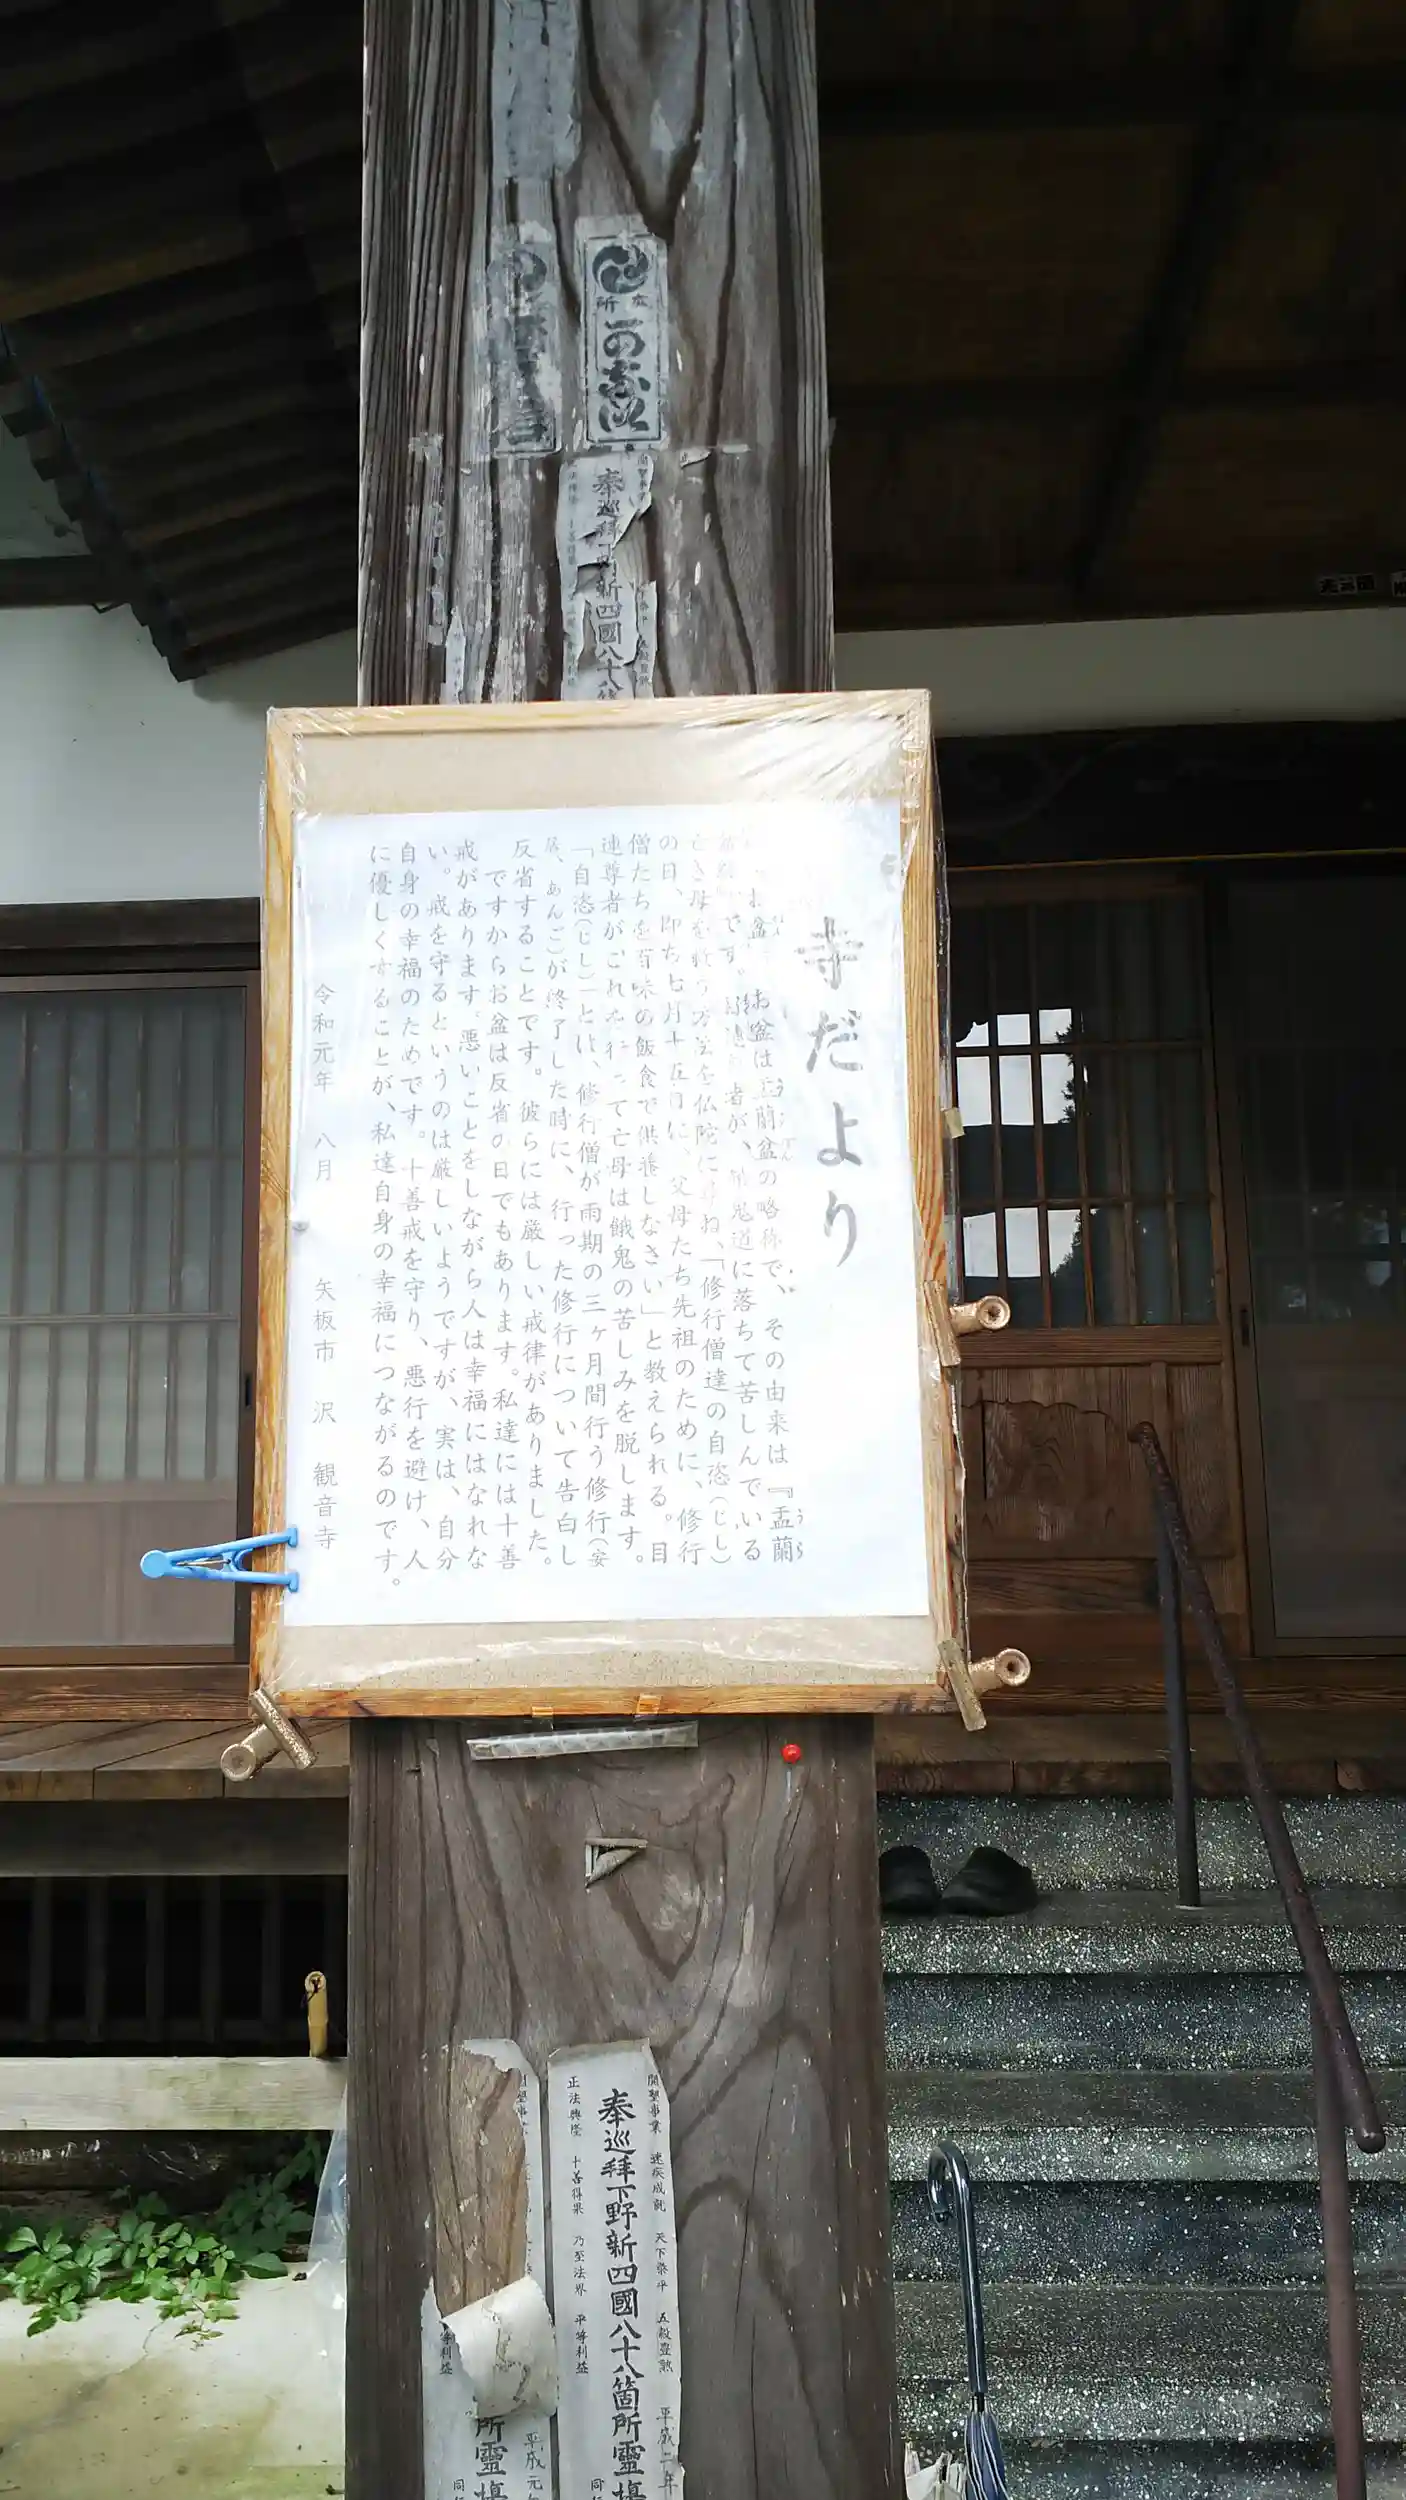 寺だより
お盆 お盆は盂蘭盆の略称で、その由来は『盂蘭
うらぼん
うら
です。 者が、餓鬼道に落ちて苦しんでいる
亡き母を救う方法を仏陀に尋ね、「修行僧達の自恣(じし)
の日、即ち七月十五日に、父母たち先祖のために、修行
僧たちを百味の飯食で供養しなさい」と教えられる。目
連尊者がこれを行って亡母は餓鬼の苦しみを脱します。
「自恣(じし)」とは、修行僧が雨期の三ヶ月間行う修行(安
居、あんご)が終了した時に、行った修行について告白し
反省することです。彼らには厳しい戒律がありました。
ですからお盆は反省の日でもあります。私達には十善
戒があります。悪いことをしながら人は幸福にはなれな
い。戒を守るというのは厳しいようですが、実は、自分
自身の幸福のためです。十善戒を守り、悪行を避け、人
に優しくすることが、私達自身の幸福につながるのです。
令和元年 八月 矢板市 沢 観音寺
奉巡拝 新四國八十八
開壂事業 速疾成就 天下泰平 五穀豊熟 平成二年
奉巡拜下野新四國八十八箇所靈場
正法興隆 十善得果 乃至法界 平等利益 同
平成元
所靈場
等利益 同